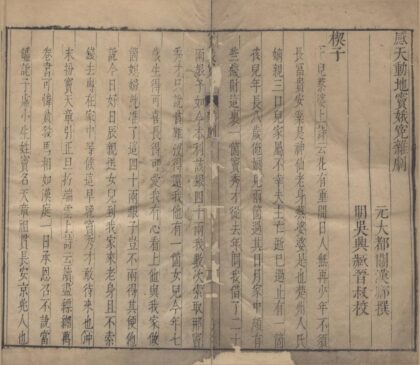 感天動地竇娥冤雜劇
元大都關漢卿撰
明吳興臧晉叔校
楔子
卜兒蔡婆上詩云花有重開日人無再少年不須
長富貴安樂是神仙老身蔡婆婆是也楚州人氏
嫡親三口兒家屬不幸夫主亡逝已過止有一個
孩兒年長八歲俺娘兒兩箇過其日月家中頗有
些錢財這裏一箇竇秀才從去年問我借了二十
兩銀子如今本利該銀四十兩我數次索取那竇
秀才只說貧難沒得還我他有一箇女兒今年七
歲生得可喜長得可愛我有心看上他與我家做
箇媳婦就准了這四十兩銀子豈不兩得其便他
說今日好日辰親送女兒到我家來老身且不索
錢去專在家中等候這早晚竇秀才敢待來也沖
末扮竇天章引正旦扮端雲上詩云讀盡縹緗萬
卷書可憐貧殺馬相如漢庭一日承恩召不說當
壚說子虛小生姓竇名天章祖貫長安京兆人也